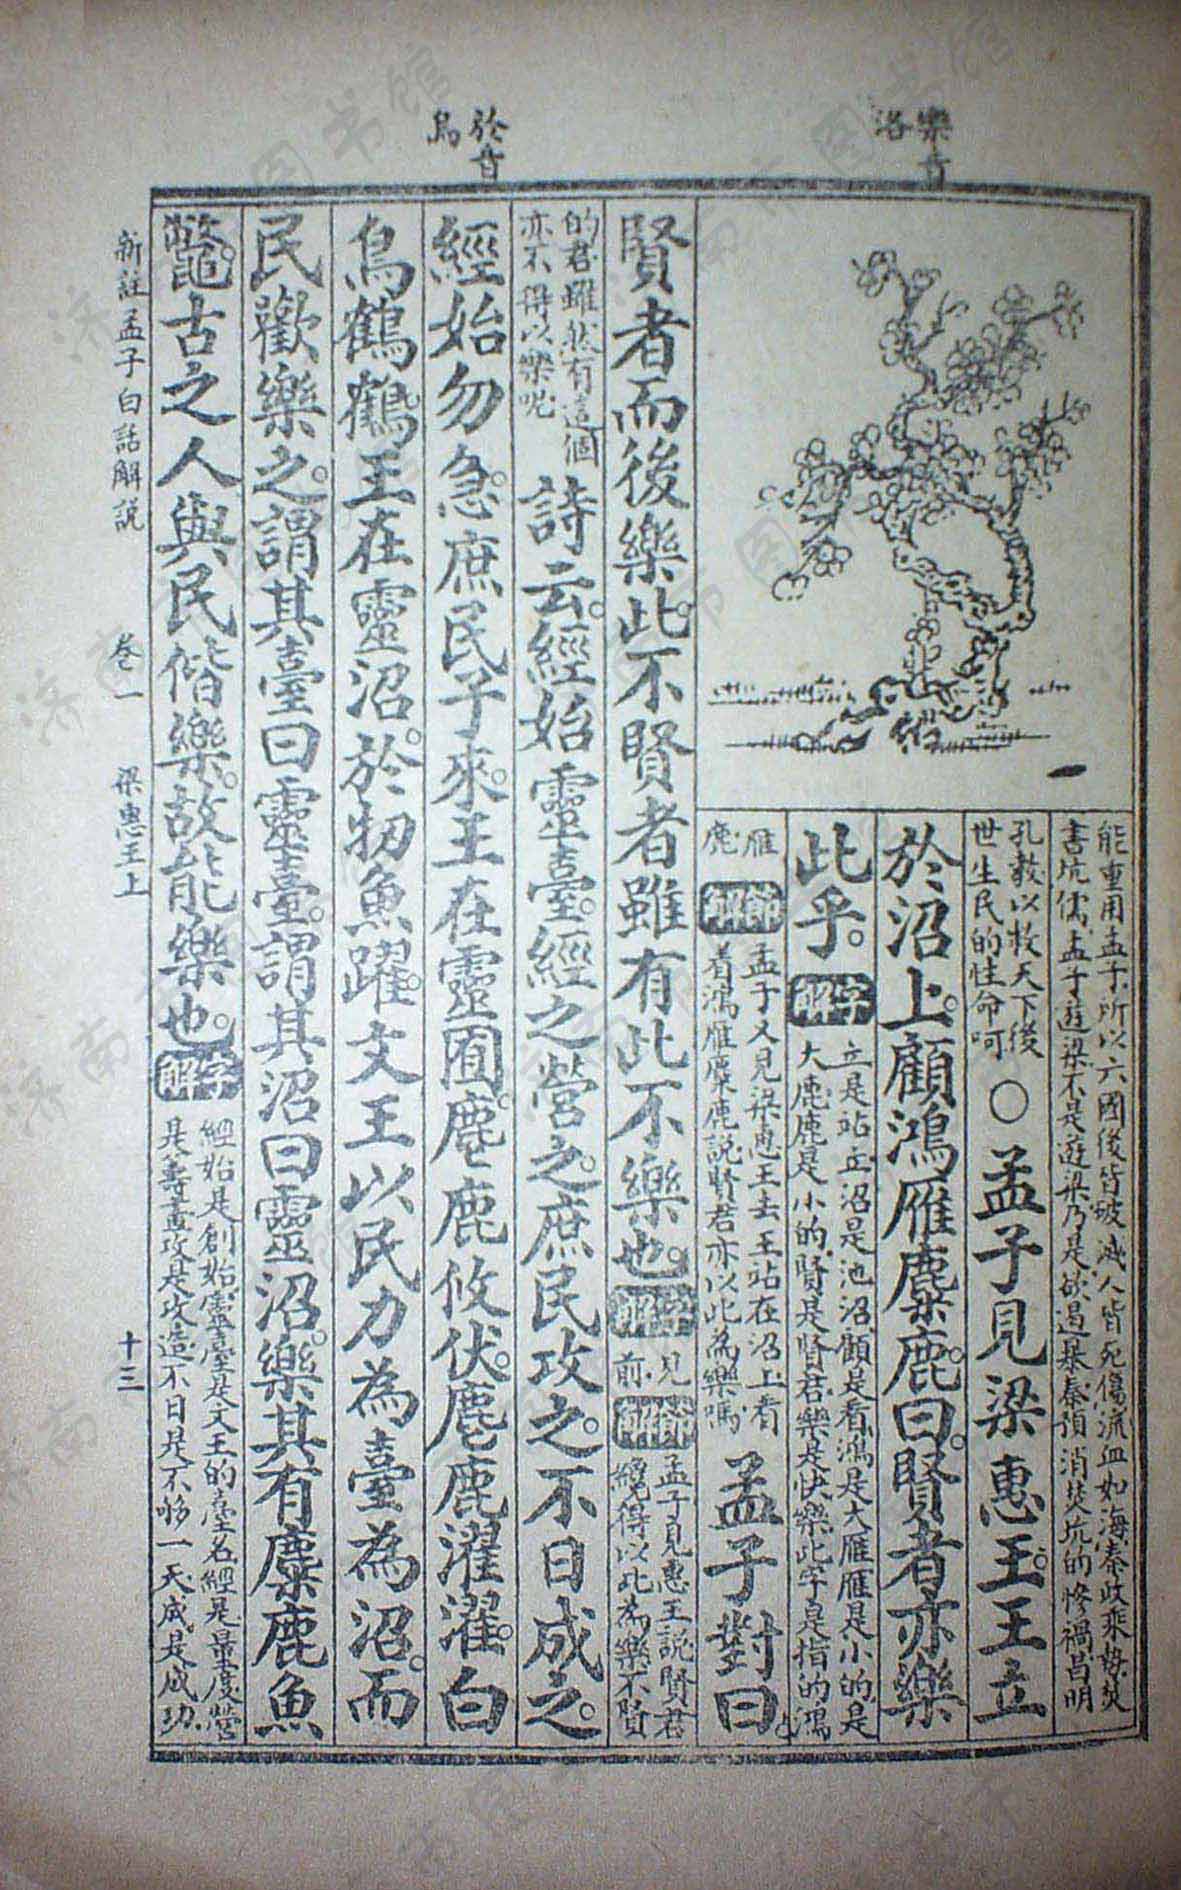 樂音洛
於音烏
能重用孟子、所以六國後皆破滅、人皆死傷、流血如海、秦政乘勢、焚
書坑儒、孟子遊梁、不是遊梁、乃是欲遏暴秦、預消焚坑的慘禍、昌明
孔教、以救天下後
世生民的性命呵
〇孟子見梁惠王。王立
於沼上。顧鴻雁麋鹿。曰。賢者亦樂
此乎。
字解
立是站立、沼是池沼、顧是看、鴻是大雁、雁是小的、是
大鹿、鹿是小的、賢是賢君、樂是快樂、此字是指的鴻
雁
鹿
節解
孟子又見梁惠王去、王站在沼上、看
着鴻雁麋鹿、說、賢君亦以此為樂嗎
孟子對曰。
賢者而後樂此。不賢者雖有此不樂也。
字解
見
前
節解
孟子見惠王說、賢君
纔得以此為樂、不賢
的君、雖然有這個
亦不得以樂呢
詩云。經始靈臺。經之營之。庶民攻之。不日成之。
經始勿急。庶民子來。王在靈囿。麀鹿攸伏。麀鹿濯濯。白
鳥鶴鶴。王在靈沼。於牣魚躍。文王以民力為臺為沼。而
民歡樂之。謂其臺曰靈臺。謂其沼曰靈沼。樂其有麋鹿魚
鼈。古之人與民偕樂。故能樂也。
字解
經始是創始、靈臺是文王的臺名、經是量度、營
是籌畫、攻是攻造、不日是不夠一天、成是成功、
新註孟子白話解說 卷一 梁惠王上 十三
济南市图书馆